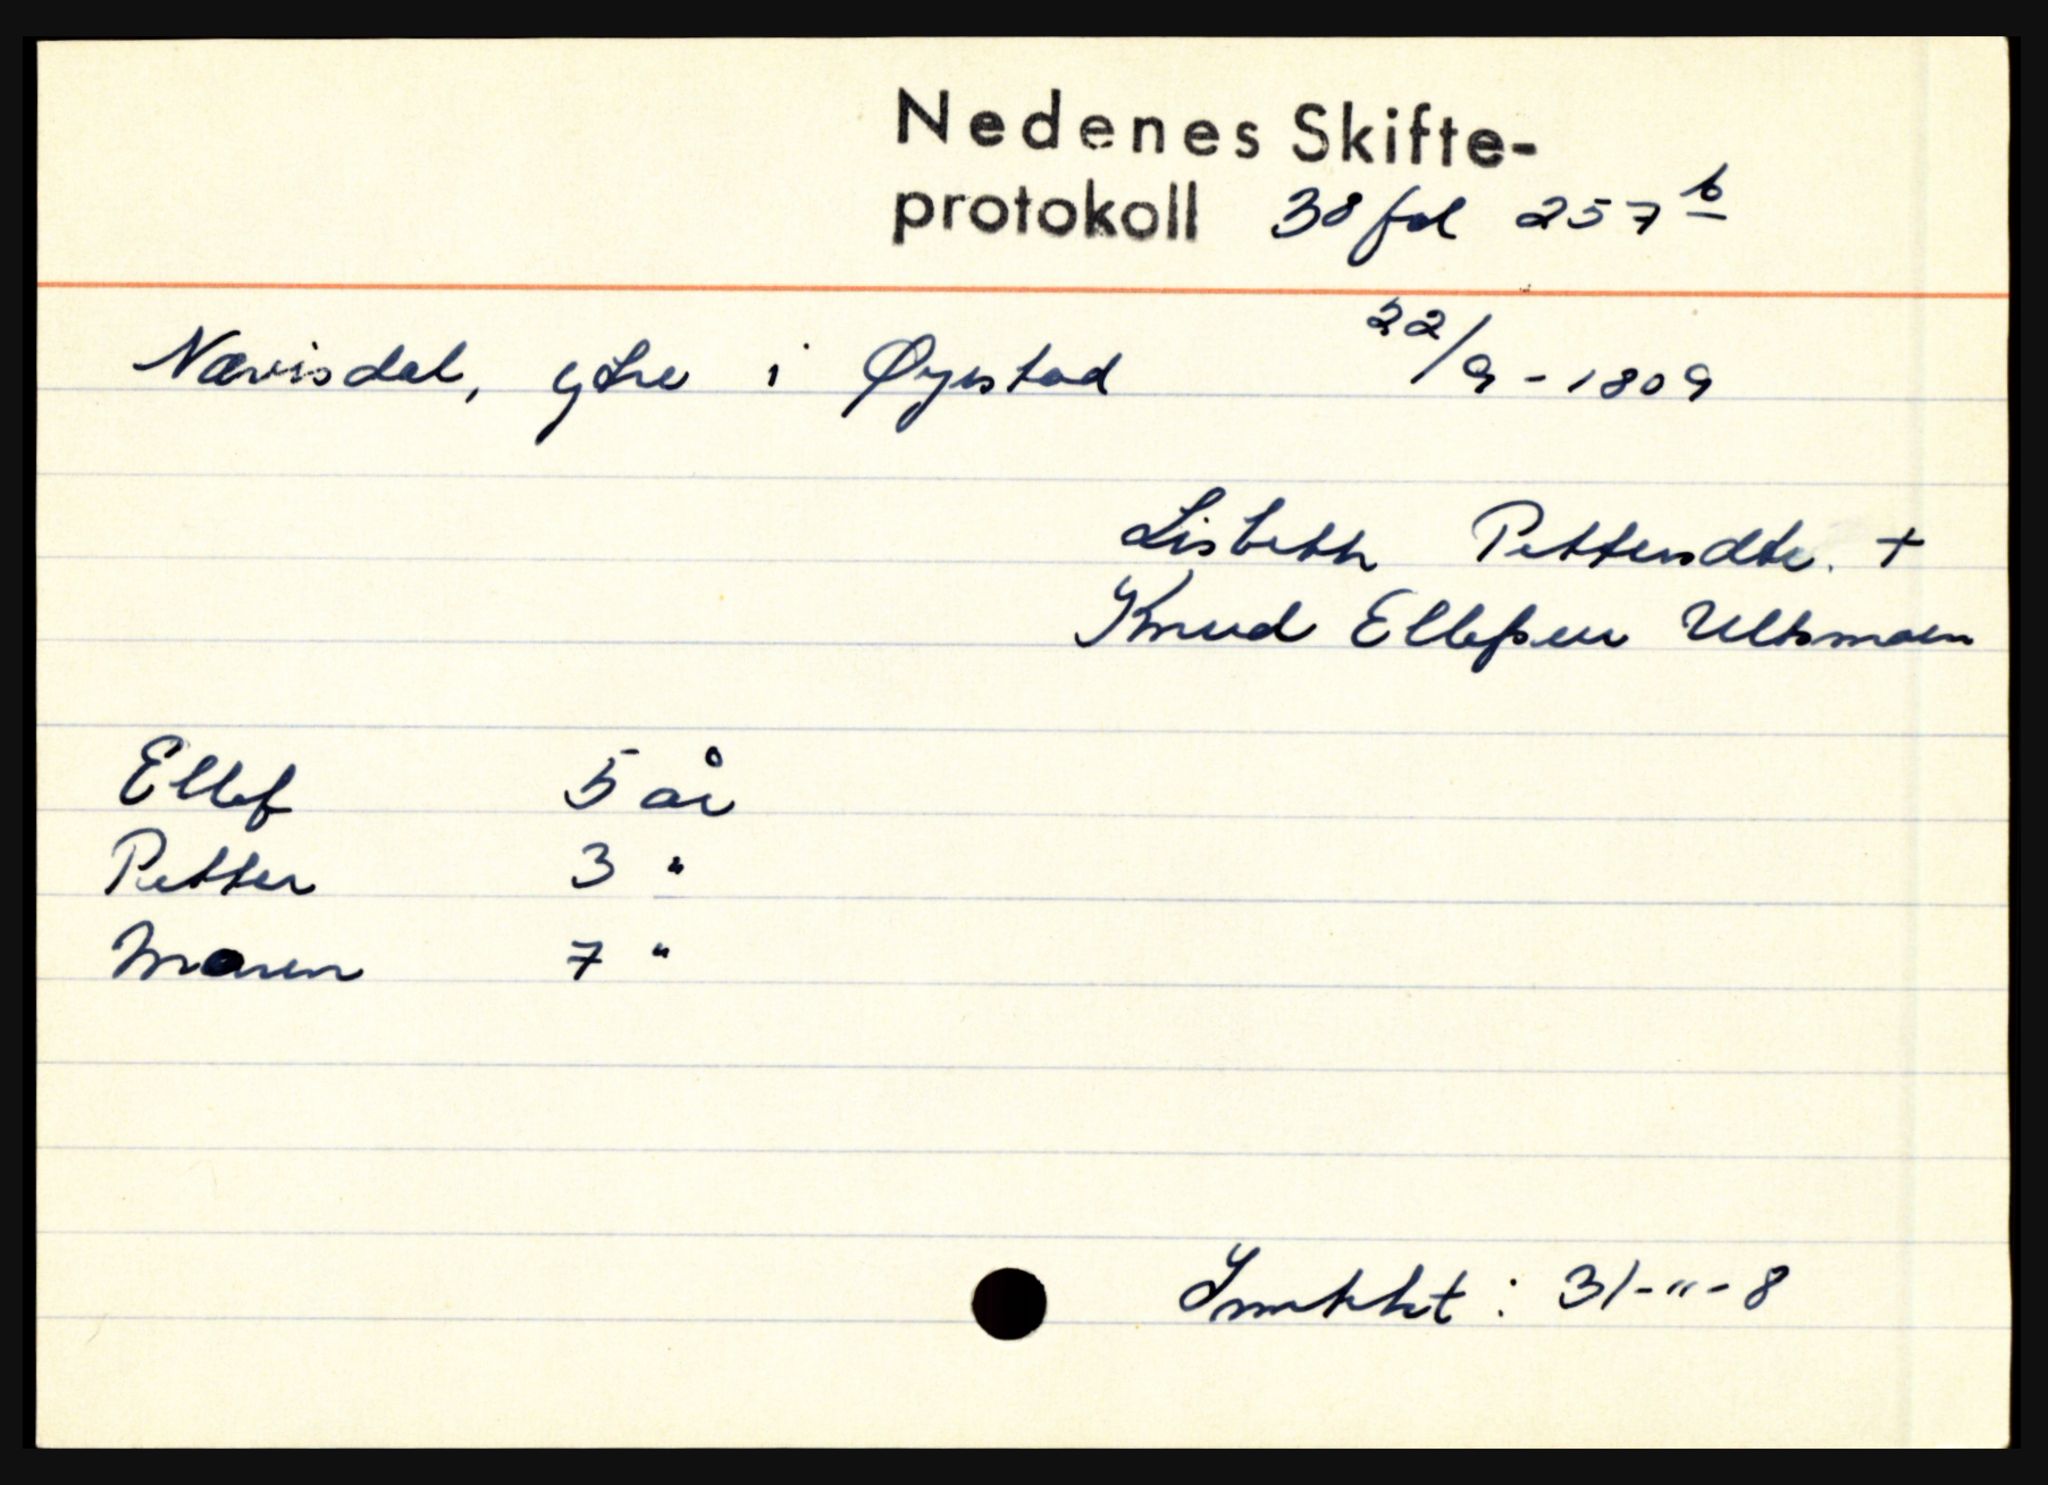 Nedenes Skifte-
protokoll 38 fol 257 b
Nævisdal, ytre i Øyestad 22/9 - 1809
Lisbeth Pettersdtr. +
Knud Ellefsen Ulsmoen
Ellef 5 år
Petter 3 "
Maren 7 "
: 31-"-8